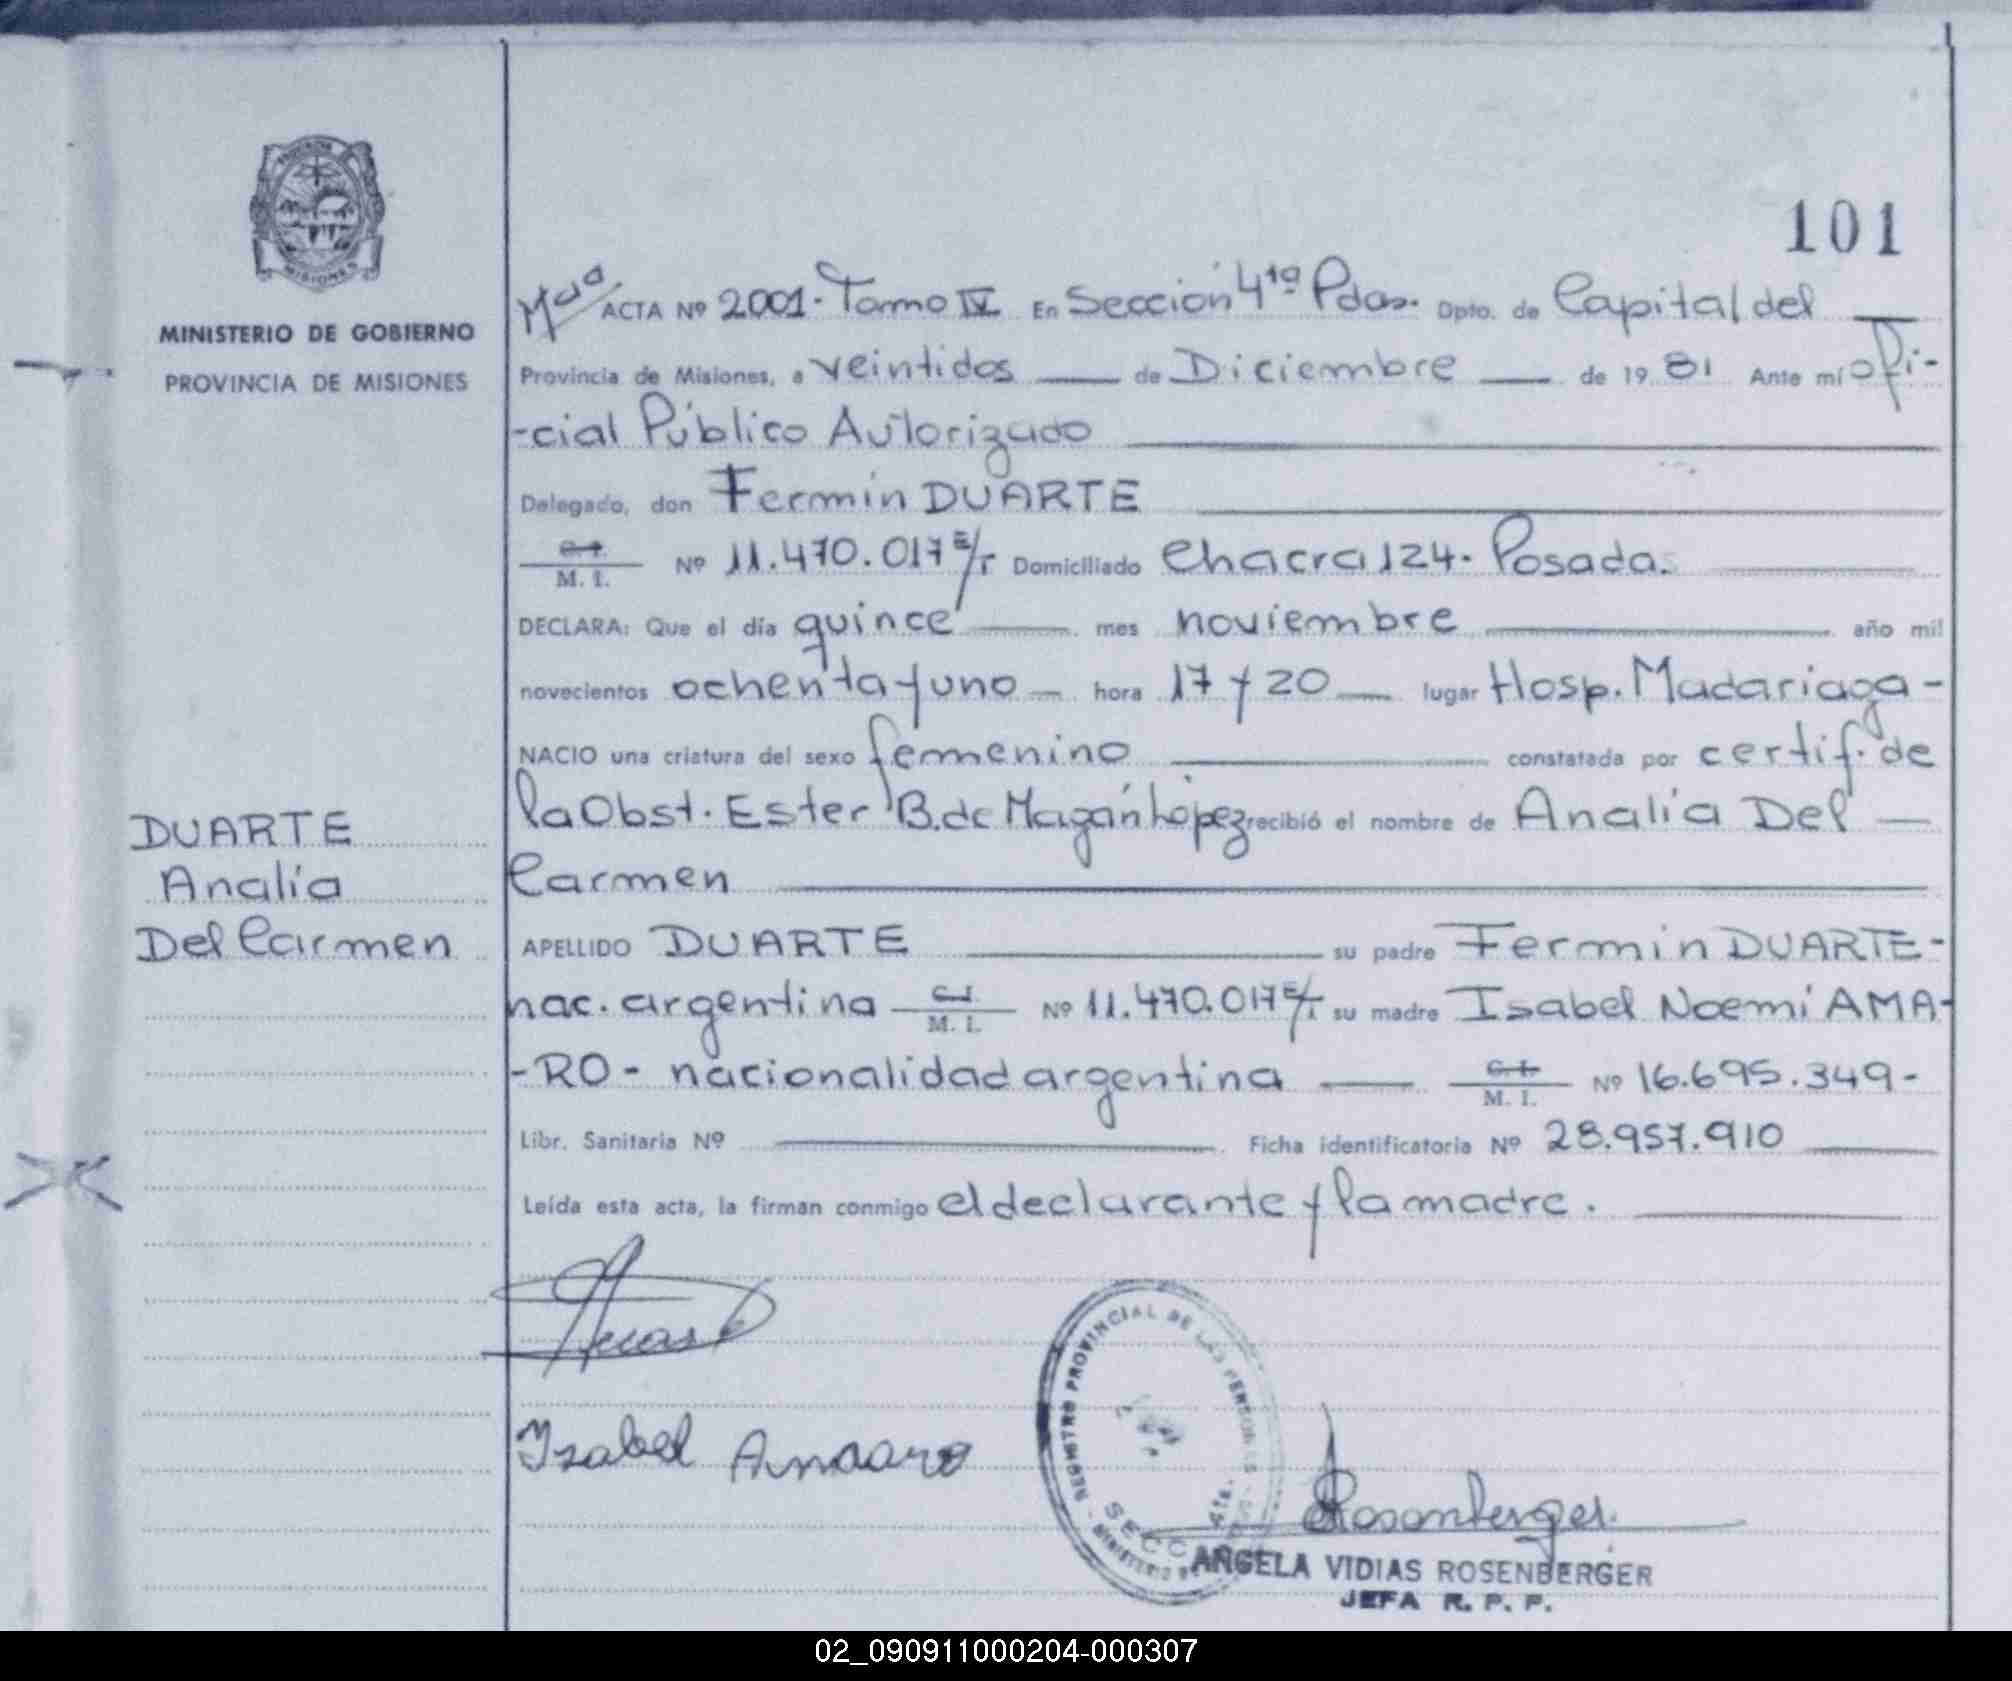 101
MINISTERIO DE GOBIERNO
PROVINCIA DE MISIONES
ACTA Nº 2001. Tomo IV En Sección 4ta Pdas. Dpto. de Capital del
Provincia de Misiones, a veintidos de Diciembre de 1981 Ante mí ofi-
-cial Público Autorizado
Delegado, don Fermin DUARTE
C.I. M. I. Nº 11.470.017 E/T Domiciliado Chacra 124. Posadas
DECLARA: Que el día quince mes noviembre año mil
novecientos ochenta y uno hora 17 y 20 lugar Hosp. Madariaga-
NACIO una criatura del sexo femenino constatada por certif. de
la Obst. Ester B. de Magán López recibió el nombre de Analía Del
Carmen
DUARTE
Analía
Del Carmen
APELLIDO DUARTE su padre Fermin DUARTE-
nac. argentina C.I. M. I. Nº 11.470.017 E/T su madre Isabel Noemí AMA-
-RO- nacionalidad argentina C.I. M. I. Nº 16.695.349-
Libr. Sanitaria Nº Ficha identificatoria Nº 28.957.910
Leída esta acta, la firman conmigo el declarante y la madre.
Isabel Amaro
REGISTRO PROVINCIAL DE LAS PERSONAS
SECC 4ta.
MINISTERIO
Rosenberger
ANGELA VIDIAS ROSENBERGER
JEFA R. P. P.
02_090911000204-000307